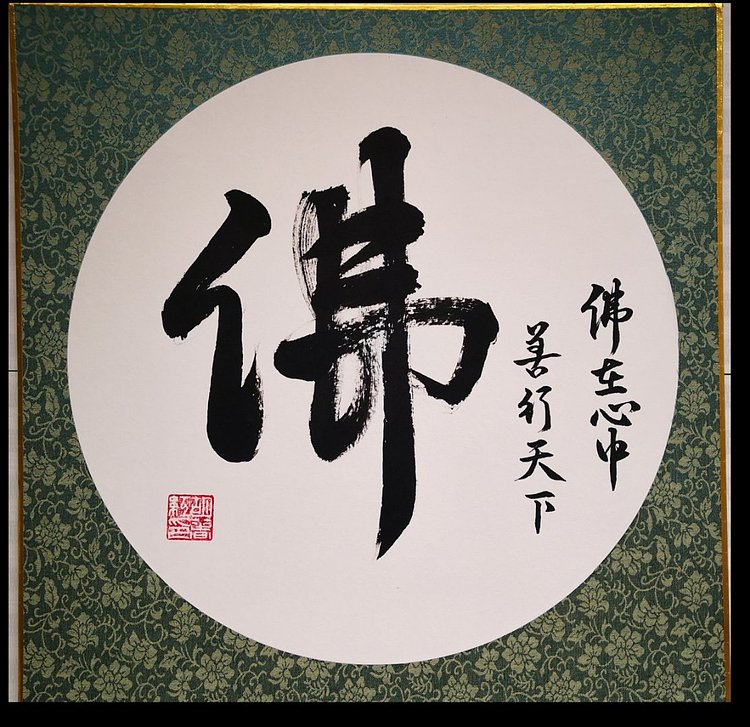 佛
佛在心中
善行天下